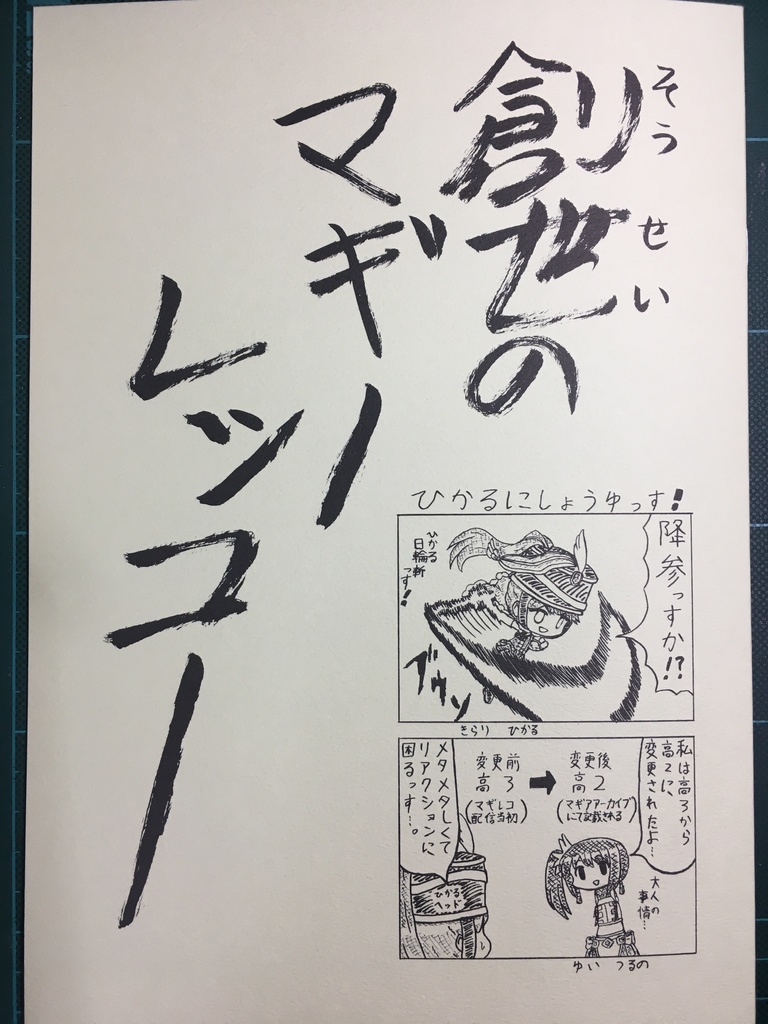 創世の
そうせい
マギノ
レッコー
ひかるにしょうゆっす!
降参っすか!?
ひかる
日輪斬
っす!
ブウン
きらり ひかる
私は高3から
高2に、
変更されたよ…
変更後
高2
(マギアアーカイブ
にて記載される)
➡
変更前
高3
(マギレコ
配信当初)
メタメタしくて
リアクションに
困るっす…。
ひかる
ヘッド
大人の
事情…
ゆい つるの